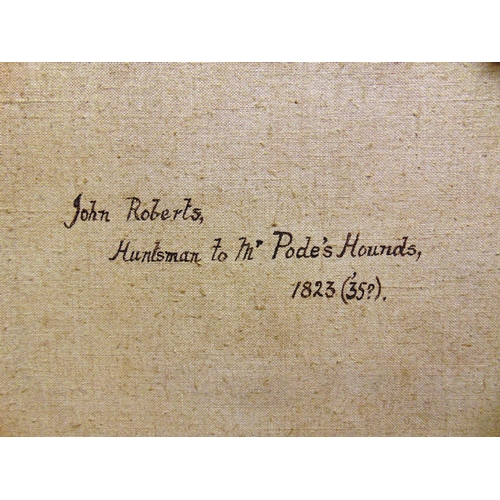 John Roberts,
Huntsman to Mr Pode's Hounds,
1823 ('35?).